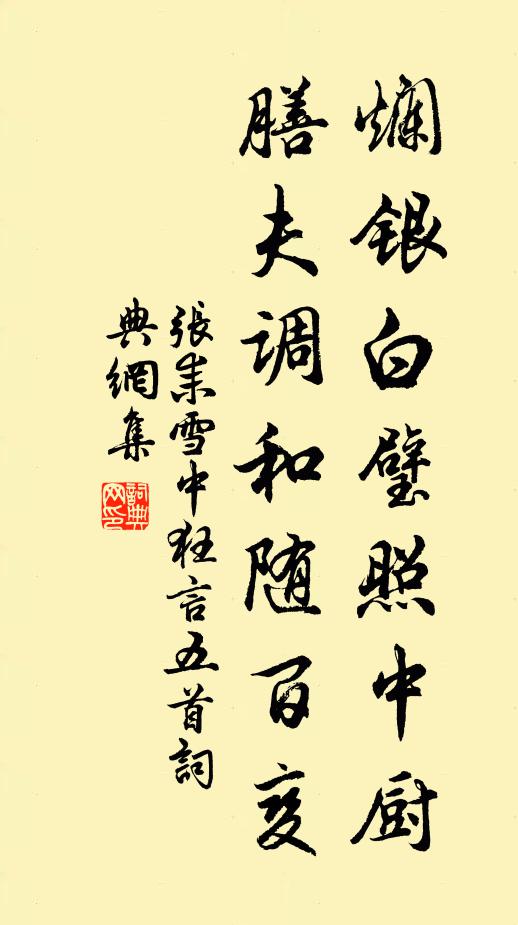 爛银白璧照中厨
膳夫调和随百变
張耒雪中狂言五首詞
典網集
詞典网印